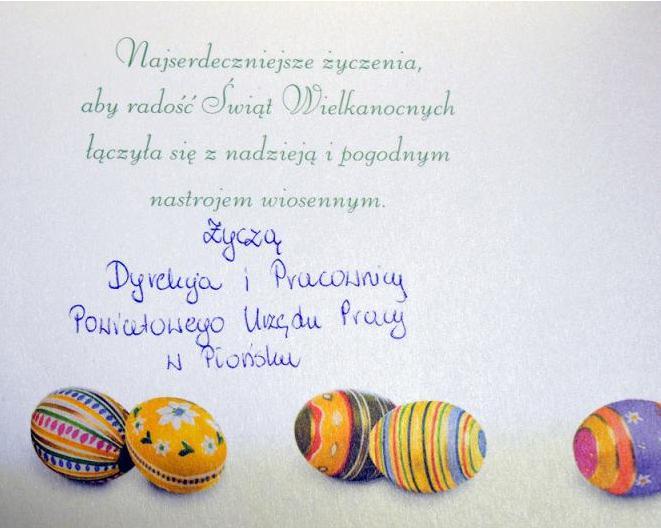 Najserdeczniejsze życzenia,
aby radość Świąt Wielkanocnych
łączyła się z nadzieją i pogodnym
nastrojem wiosennym.
Życzą
Dyrekcja i Pracownicy
Powiatowego Urzędu Pracy
w Płońsku